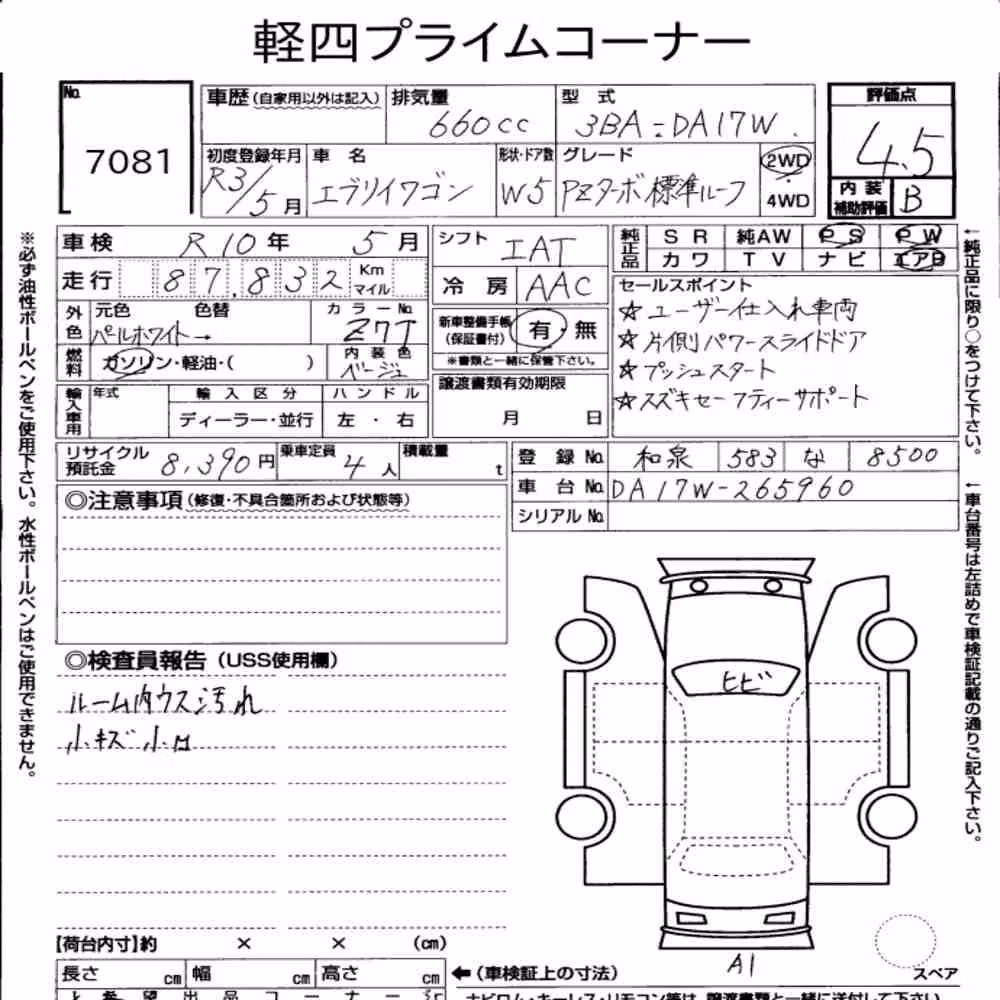 軽四プライムコーナー
No. 7081
車歴(自家用以外は記入)
排気量 660cc
型式 3BA-DA17W
評価点 4.5
内装補助評価 B
初度登録年月 R3/5月
車名 エブリイワゴン
形状・ドア数 W5
グレード PZターボ標準ルーフ
2WD・4WD
車検 R10年 5月
走行 87,832 Km マイル
外色 元色 パールホワイト→ 色替
カラーNo. Z7T
燃料 ガソリン・軽油・( )
内装色 ベージュ
輸入車用 年式 輸入区分 ディーラー・並行 ハンドル 左・右
シフト IAT
冷房 AAC
新車整備手帳(保証書付) 有・無
※書類と一緒に保管下さい。
譲渡書類有効期限
月 日
純正品 SR 純AW PS PW
カワ TV ナビ エアB
セールスポイント
☆ユーザー仕入れ車両
☆片側パワースライドドア
☆プッシュスタート
☆スズキセーフティーサポート
リサイクル預託金 8,390円
乗車定員 4人
積載量 t
登録No. 和泉 583 な 8500
車台No. DA17W-265960
シリアルNo.
◎注意事項(修復・不具合箇所および状態等)
◎検査員報告(USS使用欄)
ルーム内ウス汚れ
小キズ 小凹
ヒビ
A1
スペア
【荷台内寸】約 × × (cm)
長さ cm 幅 cm 高さ cm
←(車検証上の寸法)
※必ず油性ボールペンをご使用下さい。水性ボールペンはご使用できません。
←純正品に限り○をつけて下さい。
←車台番号は左詰めで車検証記載の通りご記入下さい。